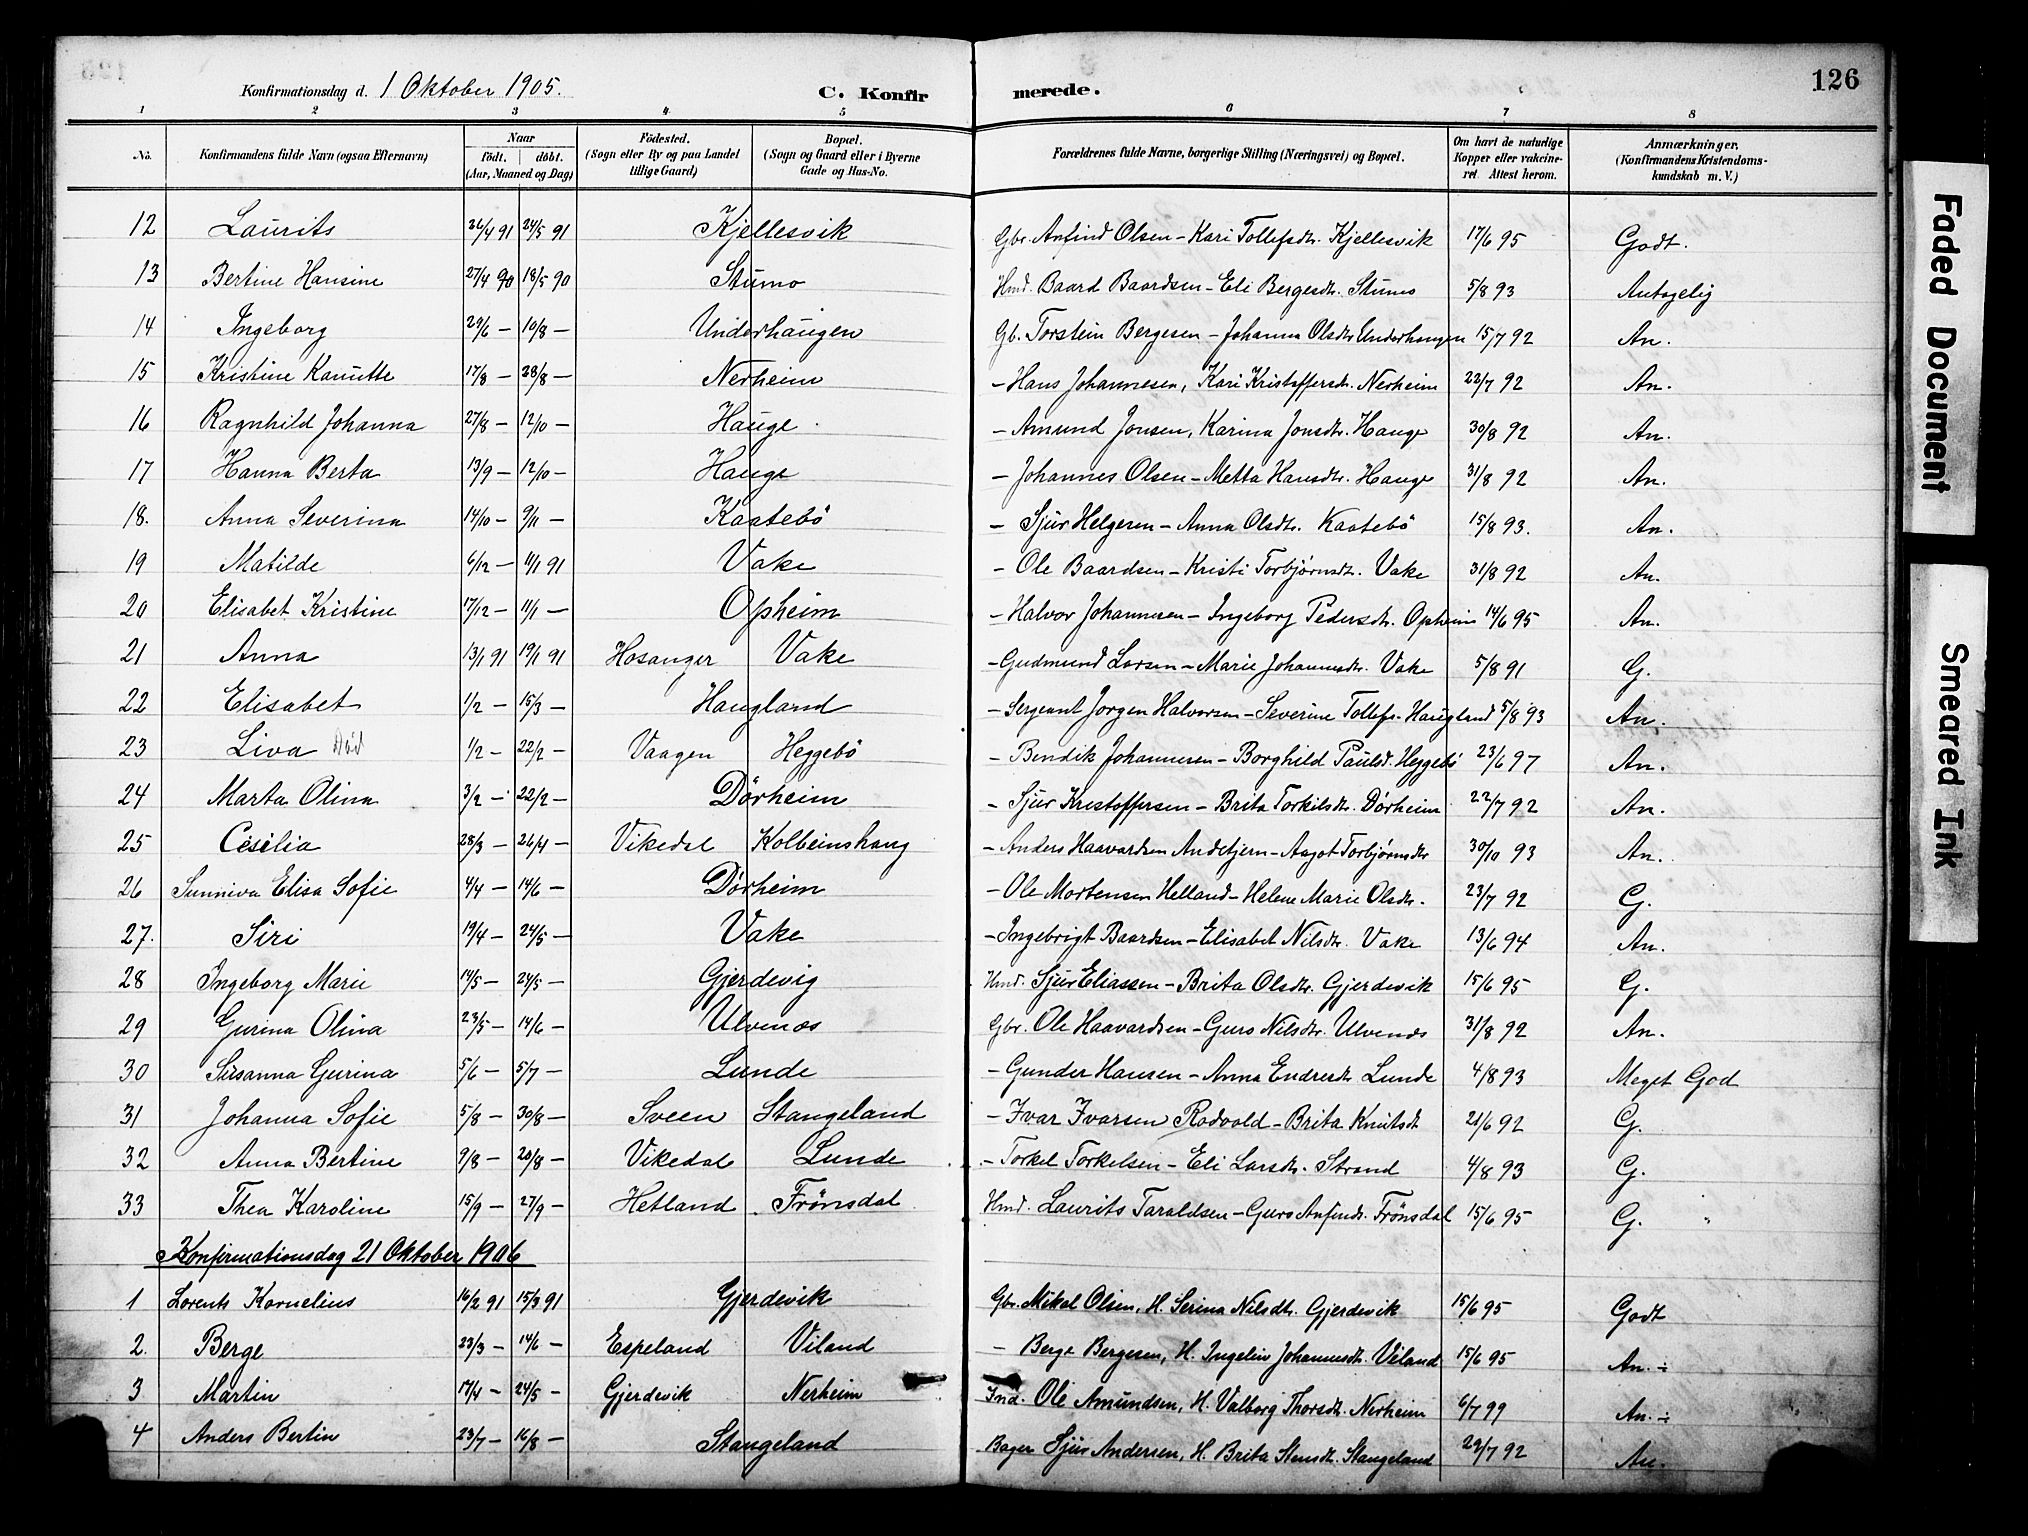 126
Konfirmationsdag d. 1 Oktober 1905. C. Konfirmerede.
1 2 3 4 5 6 7 8
No. Konfirmandens fulde Navn (ogsaa Efternavn) Naar födt. döbt. (Aar, Maaned og Dag) Födested. (Sogn eller By og paa Landet tillige Gaard) Bopæl. (Sogn og Gaard eller i Byerne Gade og Hus-No. Forældrenes fulde Navne, borgerlige Stilling (Næringsvei) og Bopæl. Om havt de naturlige Kopper eller vakcineret. Attest herom. Anmærkninger. (Konfirmandens Kristendomskundskab m. V.)
12 Laurits 26/4 91 24/5 91 Kjellesvik Gbr. Anfind Olsen - Kari Tollefsdtr. Kjellesvik 17/6 95 Godt.
13 Bertine Hansine 27/4 90 18/5 90 Stumo Hmd. Baard Baardsen - Eli Bergesdtr. Stumo 5/8 93 Antagelig
14 Ingeborg 29/6 - 10/8 - Underhaugen Gb. Torstein Bergesen - Johanna Olsdtr Underhaugen 15/7 92 An.
15 Kristine Kanutte 17/8 - 28/8 - Nerheim - Hans Johannesen, Kari Kristoffersdtr. Nerheim 22/7 92 An.
16 Ragnhild Johanna 27/8 - 12/10 - Hauge - Amund Jonsen, Karina Jonsdtr. Hauge 30/8 92 An.
17 Hanna Berta 13/9 - 12/10 - Hauge - Johannes Olsen - Metta Hansdtr. Hauge 31/8 92 An.
18. Anna Severina 14/10 - 9/11 - Kaatebö - Sjur Helgesen - Anna Olsdtr. Kaatebö 15/8 93. An.
19 Matilde 6/12 - 11/1 91 Vake - Ole Baardsen - Kristi Torbjørnsdtr. Vake 31/8 92 An.
20 Elisabet Kristine 17/12 - 11/1 - Opheim - Halvor Johannesen - Ingeborg Pedersdtr. Opheim 14/6 95 An.
21 Anna 13/1 91 19/1 91 Hosanger Vake - Gudmund Larsen - Marie Johannesdtr. Vake 5/8 91 G.
22 Elisabet 1/2 - 15/3 - Haugland - Sergeant Jorgen Halvorsen - Severine Tollefs. Haugland 5/8 93 An.
23 Liva Död 1/2 - 22/2 - Vaagen Heggebö - Bendik Johannesen - Borghild Paulsd. Heggebö 23/6 97 An.
24 Marta Olina 3/2 - 22/2 - Dörheim - Sjur Kristoffersen - Brita Torkilsdtr. Dørheim 22/7 92 An.
25 Cesilia 28/3 - 26/4 - Vikedal Kolbeinshaug - Anders Haavardsen - Aagot Torbjørnsdtr 30/10 93 An.
26 Sunniva Elisa Sofie 4/4 - 14/6 - Dörheim - Ole Mortensen Helland - Helene Marie Olsdtr. 23/7 92 G.
27. Siri 19/4 - 24/5 - Vake - Ingebrigt Baardsen - Elisabet Nilsdtr. Vake 13/6 94 An.
28 Ingeborg Marie 14/5 - 24/5 - Gjerdevig Hmd. Sjur Eliassen - Brita Olsdtr. Gjerdevik 15/6 95 G.
29 Gurina Olina 23/5 - 14/6 - Ulvenæs Gbr. Ole Haavardsen - Guro Nilsdtr. Ulvenæs 31/8 92 An.
30 Susanna Gurina 5/6 - 5/7 - Lunde - Gunder Hansen - Anna Endresdtr Lunde 4/8 93 Meget God
31 Johanna Sofie 5/8 - 30/8 - Sveen Stangeland - Ivar Ivarsen Rodvold - Brita Knutsdtr 21/6 92 G.
32 Anna Bertine 9/8 - 20/8 - Vikedal Lunde - Torkel Torkelsen - Eli Larsdtr. Strand 4/8 93 G.
33 Thea Karoline 15/9 - 27/9 - Hetland Frönsdal Hmd. Laurits Taraldsen - Guro Anfinds. Frönsdal 15/6 95 G.
Konfirmationsdag 21 Oktober 1906
1 Lorents Kornelius 16/2 91 15/3 91 Gjerdevik Gbr. Mikal Olsen, H. Serina Nilsdtr. Gjerdevik 15/6 95 Godt
2. Berge 23/3 - 14/6 - Espeland Viland - Berge Bergesen, H. Ingeliv Johannesdtr. Viland 15/6 95 An. -
3 Martin 17/4 - 24/5 - Gjerdevik Nerheim Ind. Ole Amundsen, H. Valborg Thorsdtr. Nerheim 6/7 99 An. -
4 Anders Bertin 23/7 - 16/8 - Stangeland Bager Sjur Andersen, H. Brita Stensdtr. Stangeland 29/7 92 An.
Faded Document
Smeared Ink